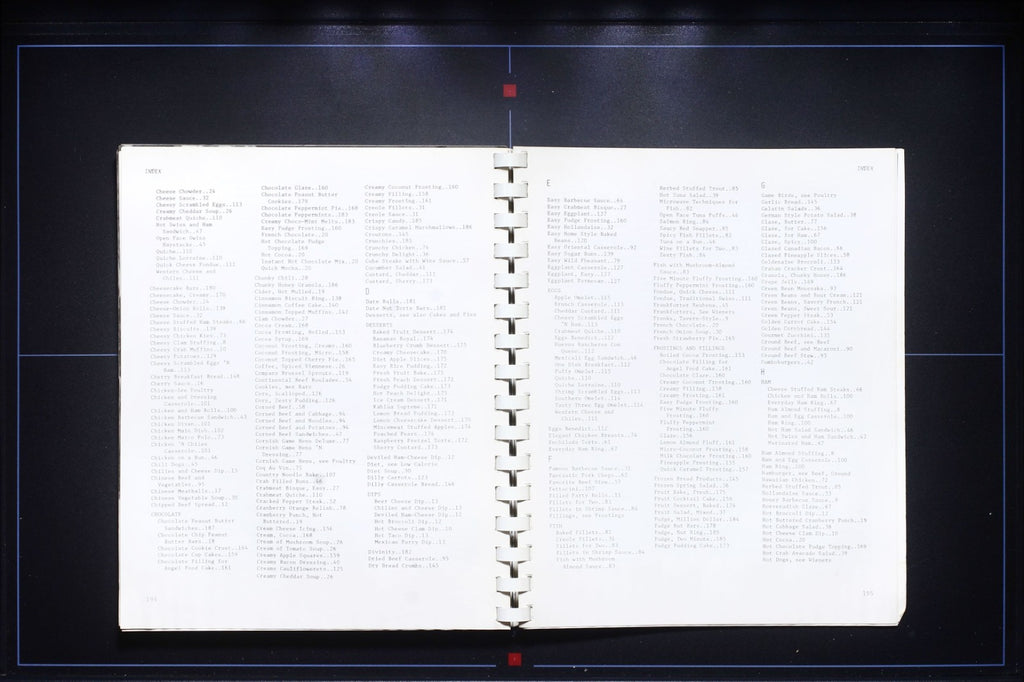 INDEX
Cheese Chowder..24
Cheese Sauce..32
Cheesy Scrambled Eggs..113
Creamy Cheddar Soup..26
Crabmeat Quiche..110
Hot Swiss and Ham
Sandwich..47
Open Face Swiss
Quiche..110
Quiche Lorraine..110
Quick Cheese Fondue..111
Western Cheese and
Chiles..111
Cheesecake Bars..190
Cheesecake, Creamy..170
Cheese Chowder..24
Cheese-Onion Rolls..139
Cheese Sauce..32
Cheese Stuffed Ham Steaks..66
Cheesy Biscuits..139
Cheesy Chicken Kiev..73
Cheesy Clam Stuffing..8
Cheesy Crab Muffins..10
Cheesy Potatoes..129
Cheesy Scrambled Eggs 'N
Ham..113
Cherry Breakfast Bread..148
Cherry Sauce..36
Chicken-Fry Poultry
Chicken and Dressing
Casserole..101
Chicken and Ham Rolls..100
Chicken Barbecue Sandwich..43
Chicken Divan..101
Chicken Main Dish..102
Chicken Marco Polo..73
Chicken 'N Chiles
Casserole..101
Chicken on a Bun..46
Chili Dogs..45
Chilies and Cheese Dip..13
Chinese Beef and
Vegetables..95
Chinese Meatballs..17
Chinese Vegetable Soup..30
Chipped Beef Spread..52
CHOCOLATE
Chocolate Peanut Butter
Sandwiches..187
Chocolate Chip Peanut
Butter Bars..18
Chocolate Cookie Crust..164
Chocolate Cup Cakes..154
Chocolate Filling for
Angel Food Cake..161
Chocolate Glaze..160
Chocolate Peanut Butter
Cookies..179
Chocolate Peppermint Pie..168
Chocolate Peppermints..183
Creamy Choco-Mint Melts..183
Easy Fudge Frosting..160
French Chocolate..20
Hot Chocolate Fudge
Topping..169
Hot Cocoa..20
Instant Hot Chocolate Mix..20
Quick Mocha..20
Chunky Chili..28
Chunky Honey Granola..186
Cider, Hot Mulled..19
Cinnamon Biscuit Ring..138
Cinnamon Coffee Cake..144
Cinnamon Topped Muffins..142
Clam Chowder..27
Cocoa Cream..168
Cocoa Frosting, Boiled..153
Cocoa Syrup..169
Coconut Frosting, Creamy..160
Coconut Frosting, Micro..158
Coconut Topped Cherry Pie..165
Coffee, Spiced Viennese..20
Company Brussel Sprouts..119
Continental Beef Roulades..54
Cookies, see Bars
Corn, Scalloped..126
Corn, Zesty Pudding..126
Corned Beef..58
Corned Beef and Cabbage..94
Corned Beef and Noodles..94
Corned Beef and Potatoes..94
Corned Beef Sandwiches..47
Cornish Game Hens Deluxe..77
Cornish Game Hens 'N
Dressing..77
Cornish Game Hens, see Poultry
Coq Au Vin..75
Country Noodle Bake..107
Crab Filled Buns..46
Crabmeat Bisque, Easy..27
Crabmeat Quiche..110
Cracked Pepper Steak..52
Cranberry Orange Relish..38
Cranberry Punch, Hot
Buttered..19
Cream Cheese Icing..156
Cream, Cocoa..168
Cream of Mushroom Soup..26
Cream of Tomato Soup..26
Creamy Apple Squares..159
Creamy Bacon Dressing..40
Creamy Cauliflowerets..125
Creamy Cheddar Soup..26
Creamy Coconut Frosting..160
Creamy Filling..158
Creamy Frosting..161
Creole Fillets..31
Creole Sauce..31
Crispy Candy..185
Crispy Caramel Marshmallows..186
Croutons..145
Crunchies..180
Crunchy Chicken..74
Crunchy Delight..36
Cube Steaks with Wine Sauce..57
Cucumber Salad..41
Custard, Cheddar..111
Custard, Sherry..173
D
Date Balls..181
Date Nut Torte Bars..181
Desserts, see also Cakes and Pies
DESSERTS
Baked Fruit Dessert..174
Bananas Royal..174
Blueberry Crumb Dessert..175
Creamy Cheesecake..170
Diet Apple Slices..175
Easy Rice Pudding..172
Fresh Fruit Bake..175
Fresh Peach Dessert..171
Fudge Pudding Cake..173
Hot Peach Delight..175
Ice Cream Dessert..171
Kahlua Supreme..171
Lemon Bread Pudding..173
Lemon Cheesecake Dessert..170
Mincemeat Stuffed Apples..174
Poached Pears..176
Raspberry Pretzel Torte..172
Sherry Custard..173
Deviled Ham-Cheese Dip..12
Diet, see Low Calorie
Diet Soup..30
Dilly Carrots..123
Dilly Casserole Bread..148
DIPS
Beef Cheese Dip..13
Chilies and Cheese Dip..13
Deviled Ham-Cheese Dip..12
Hot Broccoli Dip..12
Hot Cheese Clam Dip..10
Hot Taco Dip..13
Mexican Party Dip..13
Divinity..182
Dried Beef Casserole..95
Dry Bread Crumbs..145
194
INDEX
E
Easy Barbecue Sauce..84
Easy Crabmeat Bisque..27
Easy Eggplant..127
Easy Fudge Frosting..160
Easy Hollandaise..32
Easy Home Style Baked
Beans..120
Easy Oriental Casserole..92
Easy Sugar Buns..139
Easy Wild Pheasant..79
Eggplant Casserole..127
Eggplant, Easy..127
Eggplant Parmesan..127
EGGS
Apple Omelet..115
French Casserole..113
Cheddar Custard..111
Cheesy Scrambled Eggs
'N Ham..113
Crabmeat Quiche..110
Eggs Benedict..112
Huevos Rancheros Con
Queso..112
Meat/Cell Egg Sandwich..46
One Dish Breakfast..112
Puffy Omelet..115
Quiche..110
Quiche Lorraine..110
Shrimp Scrambled Eggs..113
Southern Omelet..114
Tasty Three Egg Omelet..114
Western Cheese and
Chiles..111
Eggs Benedict..112
Elegant Chicken Breasts..74
Enchilada Torte..93
Everyday Ham Ring..67
F
Famous Barbecue Sauce..31
Fantastic Pork Chops..62
Favorite Beef Stew..57
Fettucini..107
Filled Party Rolls..11
Fillets for Two..83
Fillets in Shrimp Sauce..84
Fillings, see Frostings
FISH
Baked Fillets..82
Creole Fillets..31
Fillets for Two..83
Fillets in Shrimp Sauce..84
Fish with Mushroom
Almond Sauce..83
Herbed Stuffed Trout..85
Hot Tuna Salad..39
Microwave Techniques for
Fish..82
Open Face Tuna Puffs..46
Salmon Ring..84
Saucy Red Snapper..85
Spicy Fish Fillets..82
Tuna on a Bun..46
Wine Fillets for Two..83
Zesty Fish..84
Fish with Mushroom-Almond
Sauce..83
Five Minute Fluffy Frosting..160
Fluffy Peppermint Frosting..160
Fondue, Quick Cheese..111
Fondue, Traditional Swiss..111
Frankfurter Reubens..45
Frankfurters, See Wieners
Franks, Tavern-Style..45
French Chocolate..20
French Onion Soup..30
Fresh Strawberry Pie..165
FROSTINGS AND FILLINGS
Boiled Cocoa Frosting..153
Chocolate Filling for
Angel Food Cake..161
Chocolate Glaze..160
Creamy Coconut Frosting..160
Creamy Filling..158
Creamy Frosting..161
Easy Fudge Frosting..160
Five Minute Fluffy
Frosting..160
Fluffy Peppermint
Frosting..160
Glaze..156
Lemon Almond Fluff..161
Micro-Coconut Frosting..158
Milk Chocolate Frosting..160
Pineapple Frosting..155
Quick Caramel Frosting..157
Frozen Bread Products..145
Frozen Spring Salad..36
Fruit Bake, Fresh..175
Fruit Cocktail Cake..156
Fruit Dessert, Baked..174
Fruit Salad, Mixed..37
Fudge, Million Dollar..184
Fudge Nut Bars..178
Fudge, Nut Ring..185
Fudge, Two Minute..185
Fudge Pudding Cake..173
G
Game Birds, see Poultry
Garlic Bread..145
Gelatin Salads..36
German Style Potato Salad..38
Glaze, Butter..77
Glaze, for Cake..156
Glaze, for Ham..67
Glaze, Spicy..100
Glazed Canadian Bacon..66
Glazed Pineapple Slices..58
Goldenaise Broccoli..123
Graham Cracker Crust..164
Granola, Chunky Honey..186
Grape Jelly..149
Green Bean Mousseka..92
Green Beans and Sour Cream..121
Green Beans, Savory French..121
Green Beans, Sweet Sour..121
Green Pepper Steak..53
Golden Carrot Cake..154
Golden Cornbread..144
Gourmet Zucchini..131
Ground Beef, see Beef
Ground Beef and Macaroni..90
Ground Beef Stew..93
Gumboburgers..42
H
HAM
Cheese Stuffed Ham Steaks..66
Chicken and Ham Rolls..100
Everyday Ham Ring..67
Ham Almond Stuffing..8
Ham and Egg Casserole..100
Ham Ring..100
Hot Ham Salad Sandwich..46
Hot Swiss and Ham Sandwich..47
Marinated Ham..67
Ham Almond Stuffing..8
Ham and Egg Casserole..100
Ham Ring..100
Hamburger, see Beef, Ground
Hawaiian Chicken..72
Herbed Stuffed Trout..85
Hollandaise Sauce..33
Honey Barbecue Sauce..9
Horseradish Glaze..67
Hot Broccoli Dip..12
Hot Buttered Cranberry Punch..19
Hot Cabbage Salad..38
Hot Cheese Clam Dip..10
Hot Cocoa..20
Hot Chocolate Fudge Topping..169
Hot Crab Avocado Salad..39
Hot Dogs, see Wieners
195